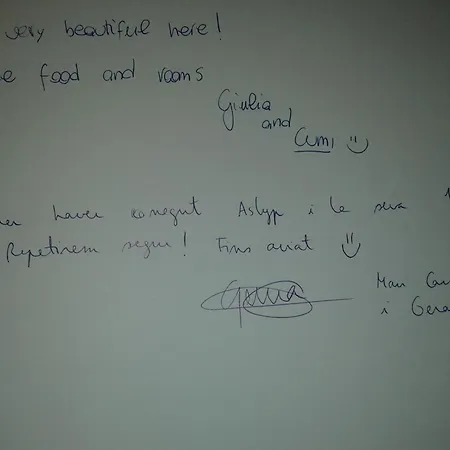 very beautiful here!
food and rooms
Giulia
and
Cumi :)
haver conegut Aslyp i la seva
Repetirem segur! Fins aviat :)
Mari Car
i Gera